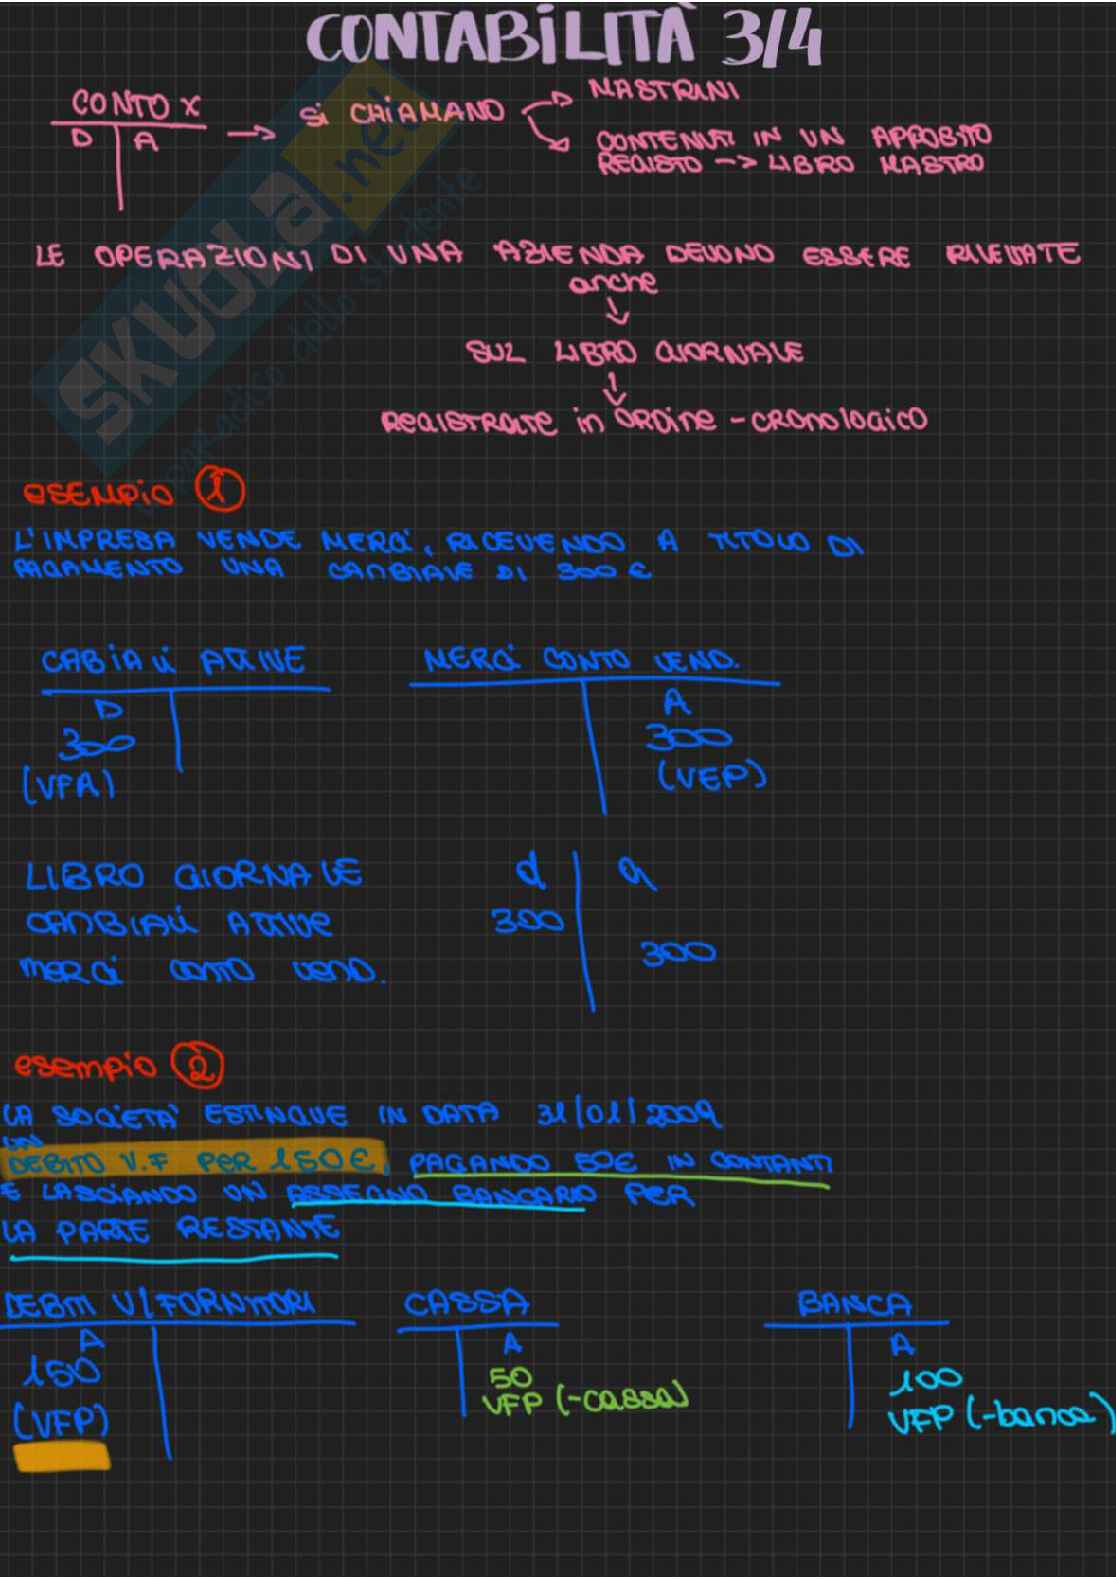 CONTABiLITÀ 3/4
CONTO X
D A
→ Si CHiAMANO
MASTRINI
CONTENUTI IN UN APPOSITO
REGISTO -> LIBRO MASTRO
LE OPERAZIONI DI UNA AZIENDA DEVONO ESSERE RILEVATE
anche
SUL LIBRO GIORNALE
REGISTRATE in ORDine - CRONOlogico
SKUOLA.net
esempio 1
L'IMPRESA VENDE MERCI, RICEVENDO A TITOLO DI
PAGAMENTO UNA CAMBIALE DI 300 €
CABIALI ATTIVE
MERCI CONTO VEND.
D
300
(VFA)
A
300
(VEP)
LIBRO GIORNALE d a
CAMBIALI ATTIVE 300
merci conto vend. 300
esempio 2
LA SOCIETA' ESTINGUE IN DATA 31/01/2009
UN
DEBITO V.F PER 150€, PAGANDO 50€ IN CONTANTI
E LASCIANDO UN ASSEGNO BANCARIO PER
LA PARTE RESTANTE
DEBITI V/FORNITORI
CASSA
BANCA
A
150
(VFP)
A
50
VFP (-cassa)
A
100
VFP (-banca)